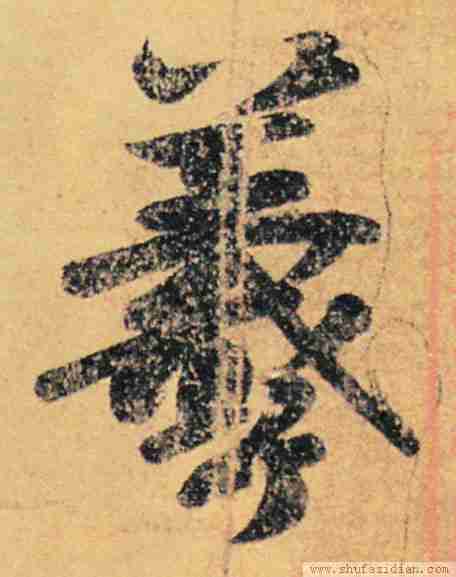 羲
www.shufazidian.com